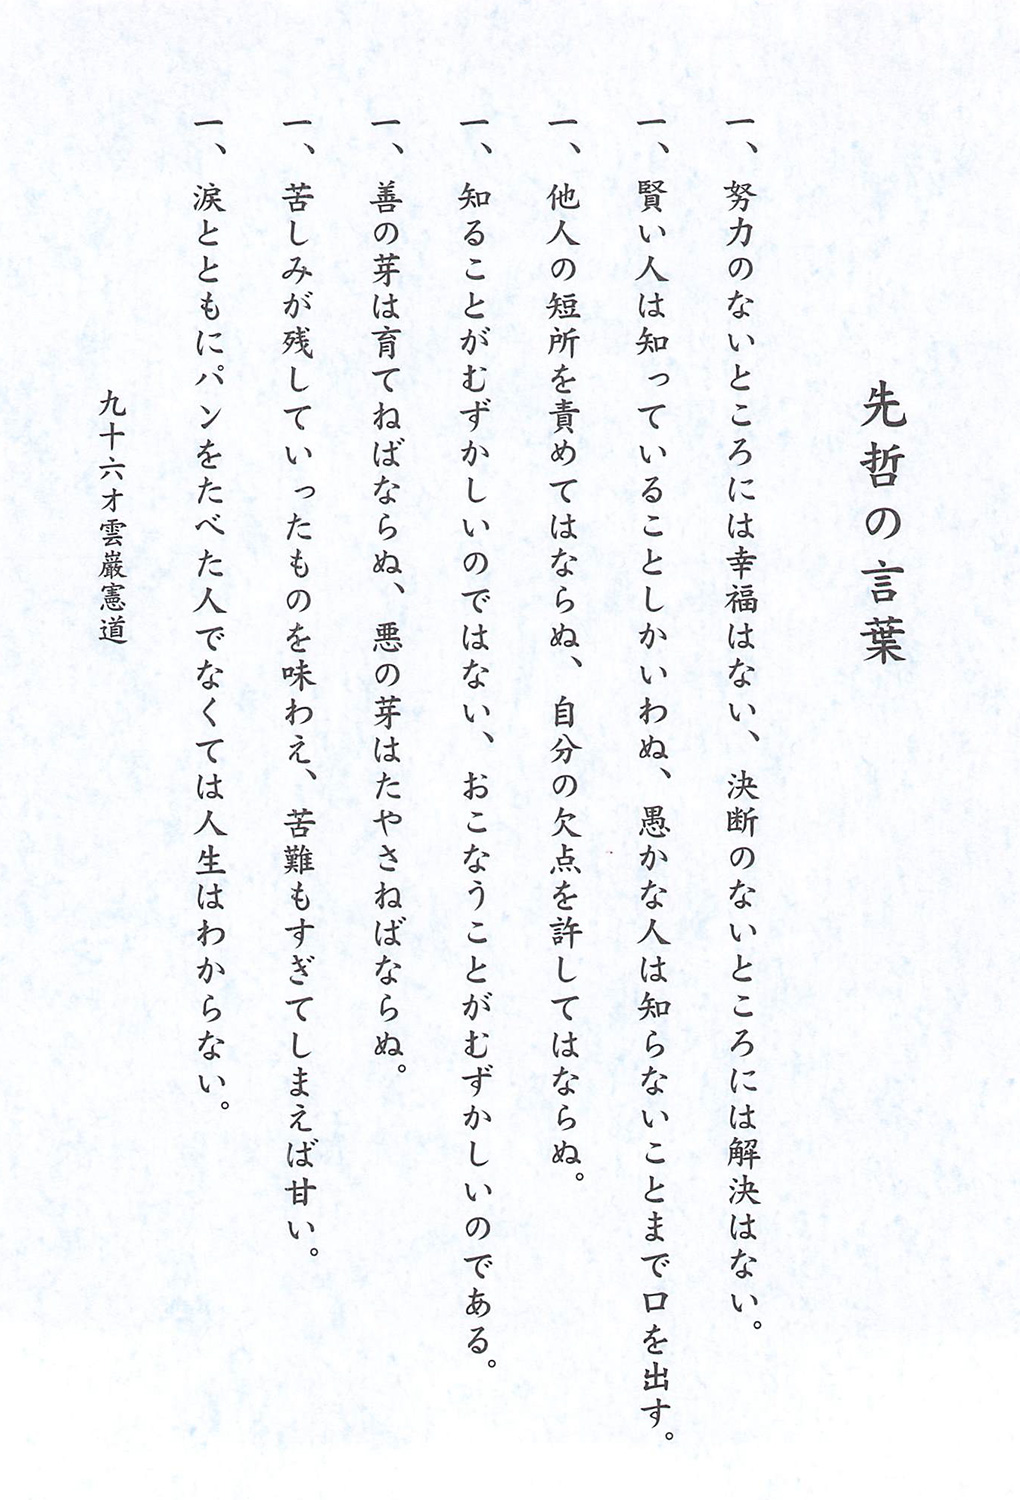 先哲の言葉
一、努力のないところには幸福はない、決断のないところには解決はない。
一、賢い人は知っていることしかいわぬ、愚かな人は知らないことまで口を出す。
一、他人の短所を責めてはならぬ、自分の欠点を許してはならぬ。
一、知ることがむずかしいのではない、おこなうことがむずかしいのである。
一、善の芽は育てねばならぬ、悪の芽はたやさねばならぬ。
一、苦しみが残していったものを味わえ、苦難もすぎてしまえば甘い。
一、涙とともにパンをたべた人でなくては人生はわからない。
九十六才雲巌憲道